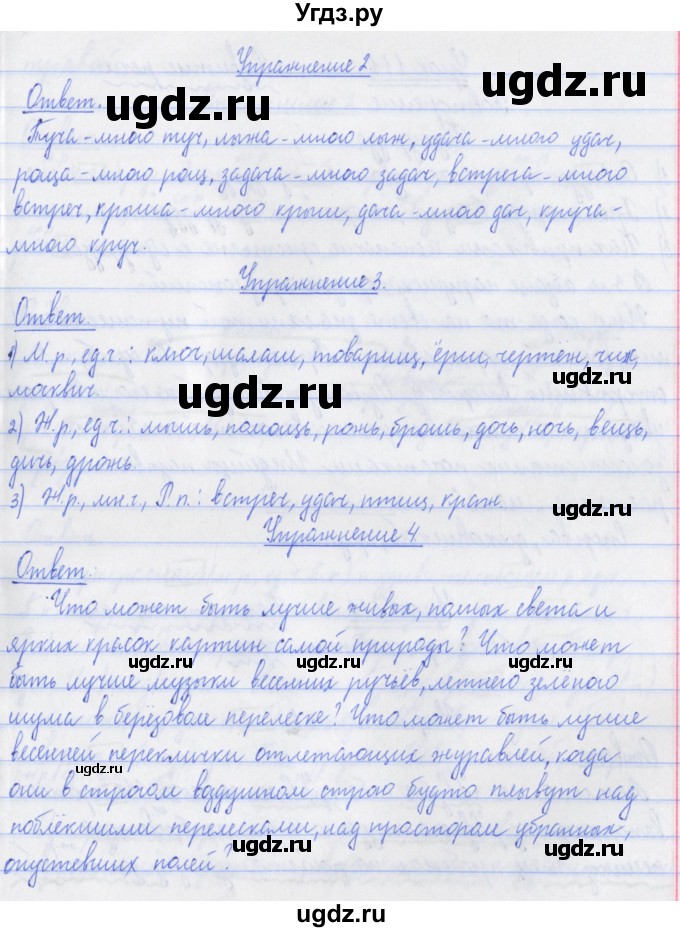 Угдз.ру
Упражнение 2.
Ответ.
ugdz.ru
Туча – много туч, лыжа – много лыж, удача – много удач,
роща – много рощ, задача – много задач, встреча – много
встреч, крыша – много крыш, дача – много дач, круча –
много круч.
Упражнение 3.
Ответ
1) М.р., ед.ч.: ключ, шалаш, товарищ, ёрш, чертёж, чиж,
ugdz.ru
ugdz.ru
москвич.
2) Ж.р., ед.ч.: мышь, помощь, рожь, брошь, дочь, ночь, вещь,
дичь, дрожь.
3) Ж.р., мн.ч., Р.п.: встреч, удач, птиц, краж.
ugdz.ru
Упражнение 4.
Ответ:
Что может быть лучше живых, полных света и
ярких красок картин самой природы? Что может
ugdz.ru
ugdz.ru
быть лучше музыки весенних ручьёв, летнего зеленого
шума в берёзовом перелеске? Что может быть лучше
весенней переклички отлетающих журавлей, когда
ugdz.ru
они в строгом воздушном строю будто плывут над
поблёкшими перелесками, над простором убранных,
ugdz.ru
ugdz.ru
опустевших полей?
ugdz.ru